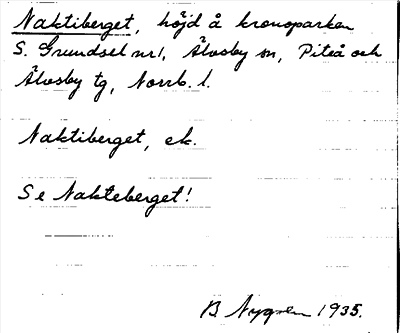 Naktiberget, höjd å kronoparken
S. Grundsel nr 1, Älvsby sn, Piteå och
Älvsby tg, Norrb. l.
Naktiberget, ek.
Se Nakteberget!
B Nygren 1935.